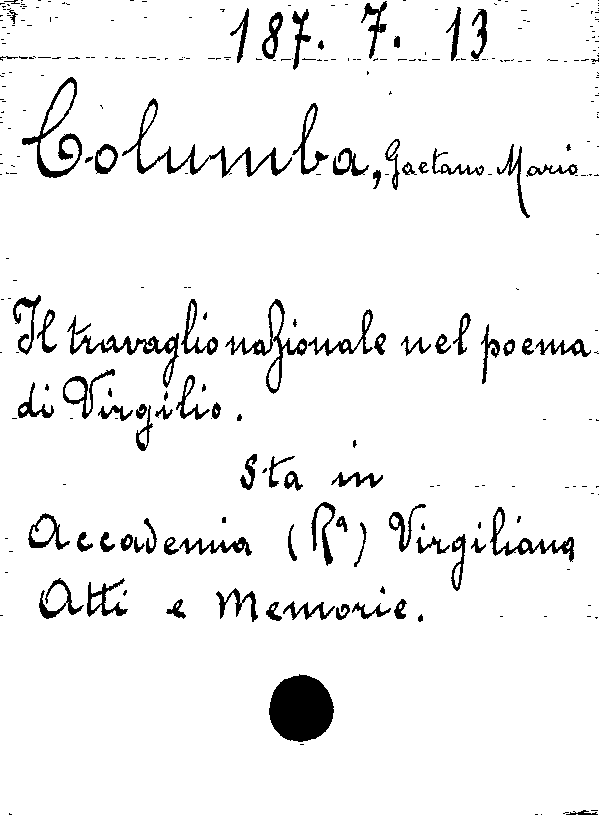 187. 7. 13
Columba, Gaetano Mario
Il travaglio nazionale nel poema
di Virgilio.
Sta in
Accademia (Rª) Virgiliana
Atti e Memorie.